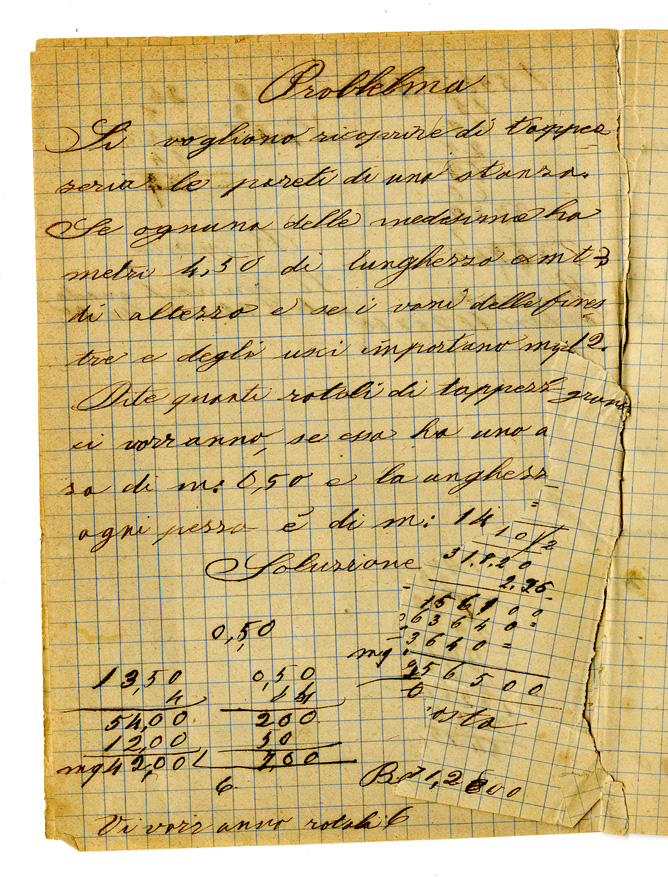 Problema
Si vogliono ricoprire di tappez
zeria le pareti di una stanza.
Se ognuna delle medesime ha
metri 4,50 di lunghezza e mt 3
di altezza e se i vani delle fines
tre e degli usci importano mq 12.
Dite quanti rotoli di tappezz
ci vorranno, se essa ha una a
za di m: 0,50 e la unghezz
ogni pezzo è di m: 14
Soluzione
0,50
13,50
4
54,00
12,00
mq 42,00
0,50
14
200
50
7,00
6
Vi vorranno rotoli 6
10/2
31.8.20
2.95
mq
osta